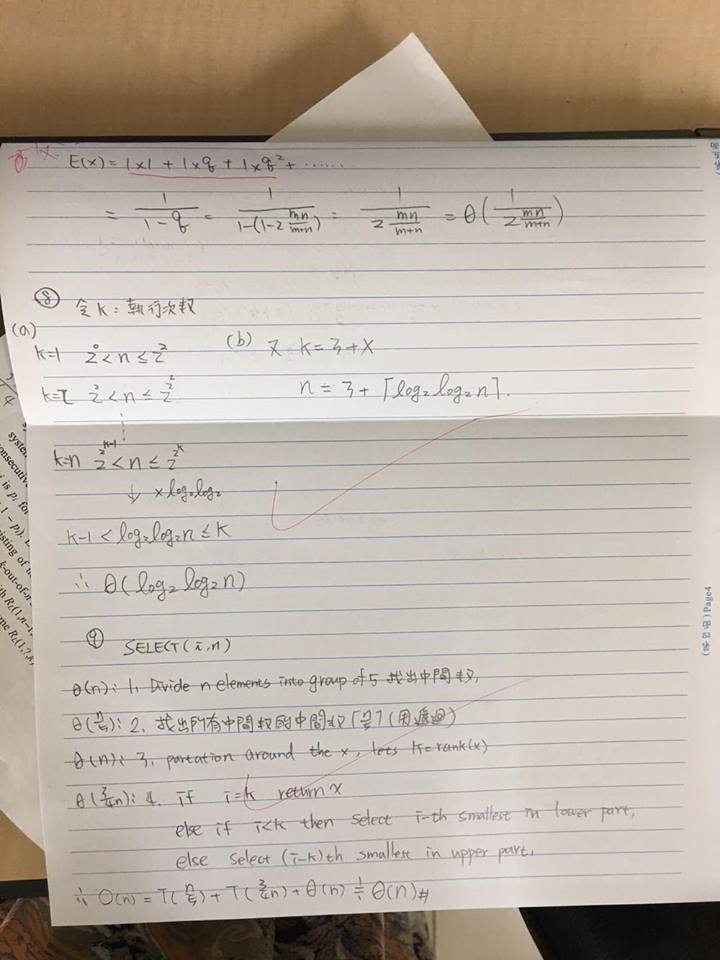 E(x) = 1×1 + 1×q + 1×q² + ......
= 1/(1-q) = 1/(1-(1-2^(mn/(m+n)))) = 1/(2^(mn/(m+n))) = θ(1/(2^(mn/(m+n))))
⑧ 令 k = 執行次數
(a)
k=1 2^0 < n ≤ 2^2
k=2 2^2 < n ≤ 2^2^2
k=n 2^2^(k-1) < n ≤ 2^2^k
↓ × log₂log₂
k-1 < log₂log₂n ≤ k
∴ θ(log₂ log₂ n)
(b) 又 k = 3 + x
n = 3 + ⌈log₂ log₂ n⌉.
⑨ SELECT(i,n)
θ(n): 1. Divide n elements into group of 5 找出中間數,
θ(n/5): 2. 找出所有中間數的中間數 ⌈n/5⌉ (用遞迴)
θ(n): 3. partation around the x, lets k=rank(x)
θ(3/4n): 4. if i=k return x
else if i<k then select i-th smallest in lower part,
else select (i-k)th smallest in upper part,
∴ O(n) = T(n/5) + T(3/4n) + θ(n) ≒ θ(n)#
Page4
system
consecutive
is p, for
1 - p).
isting of
k-out-of-n